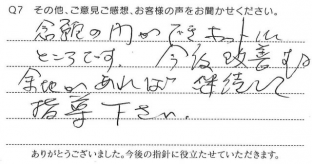 Q7 その他、ご意見ご感想、お客様の声をお聞かせください。
念願の門ができホットした
ところです。今後改善する
余地があれば 接続して
指導下さい。
ありがとうございました。今後の指針に役立たせていただきます。